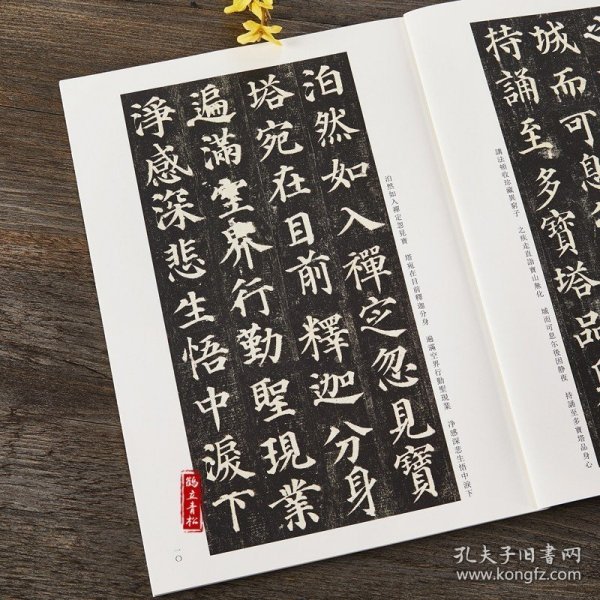 城而可息
持誦至多寶塔品
講法頓收珍藏異窮子 之疾走直詣寶山無化 城而可息尔後因静夜 持誦至多寶塔品身心
泊然如入禪定忽見寶
塔宛在目前釋迦分身
遍滿空界行勤聖現業
淨感深悲生悟中淚下
泊然如入禪定忽見寶 塔宛在目前釋迦分身 遍滿空界行勤聖現業 净感深悲生悟中淚下
一〇
鶴立青松
孔夫子旧書网
www.kongfz.com